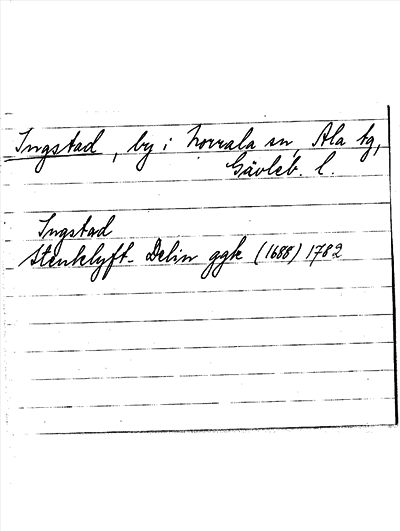 Ingstad, by i Norrala sn, Ala tg,
Gävleb. l.
Ingstad
Stenklyft. Delin ggk (1688) 1782